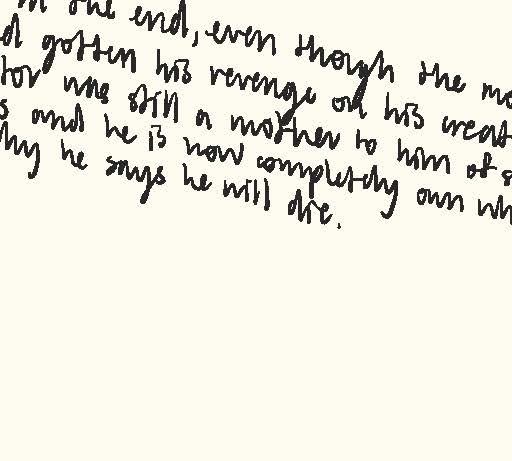 the end, even though the
gotten his revenge on his
was still a mother to him of
and he is now completely own
he says he will die.